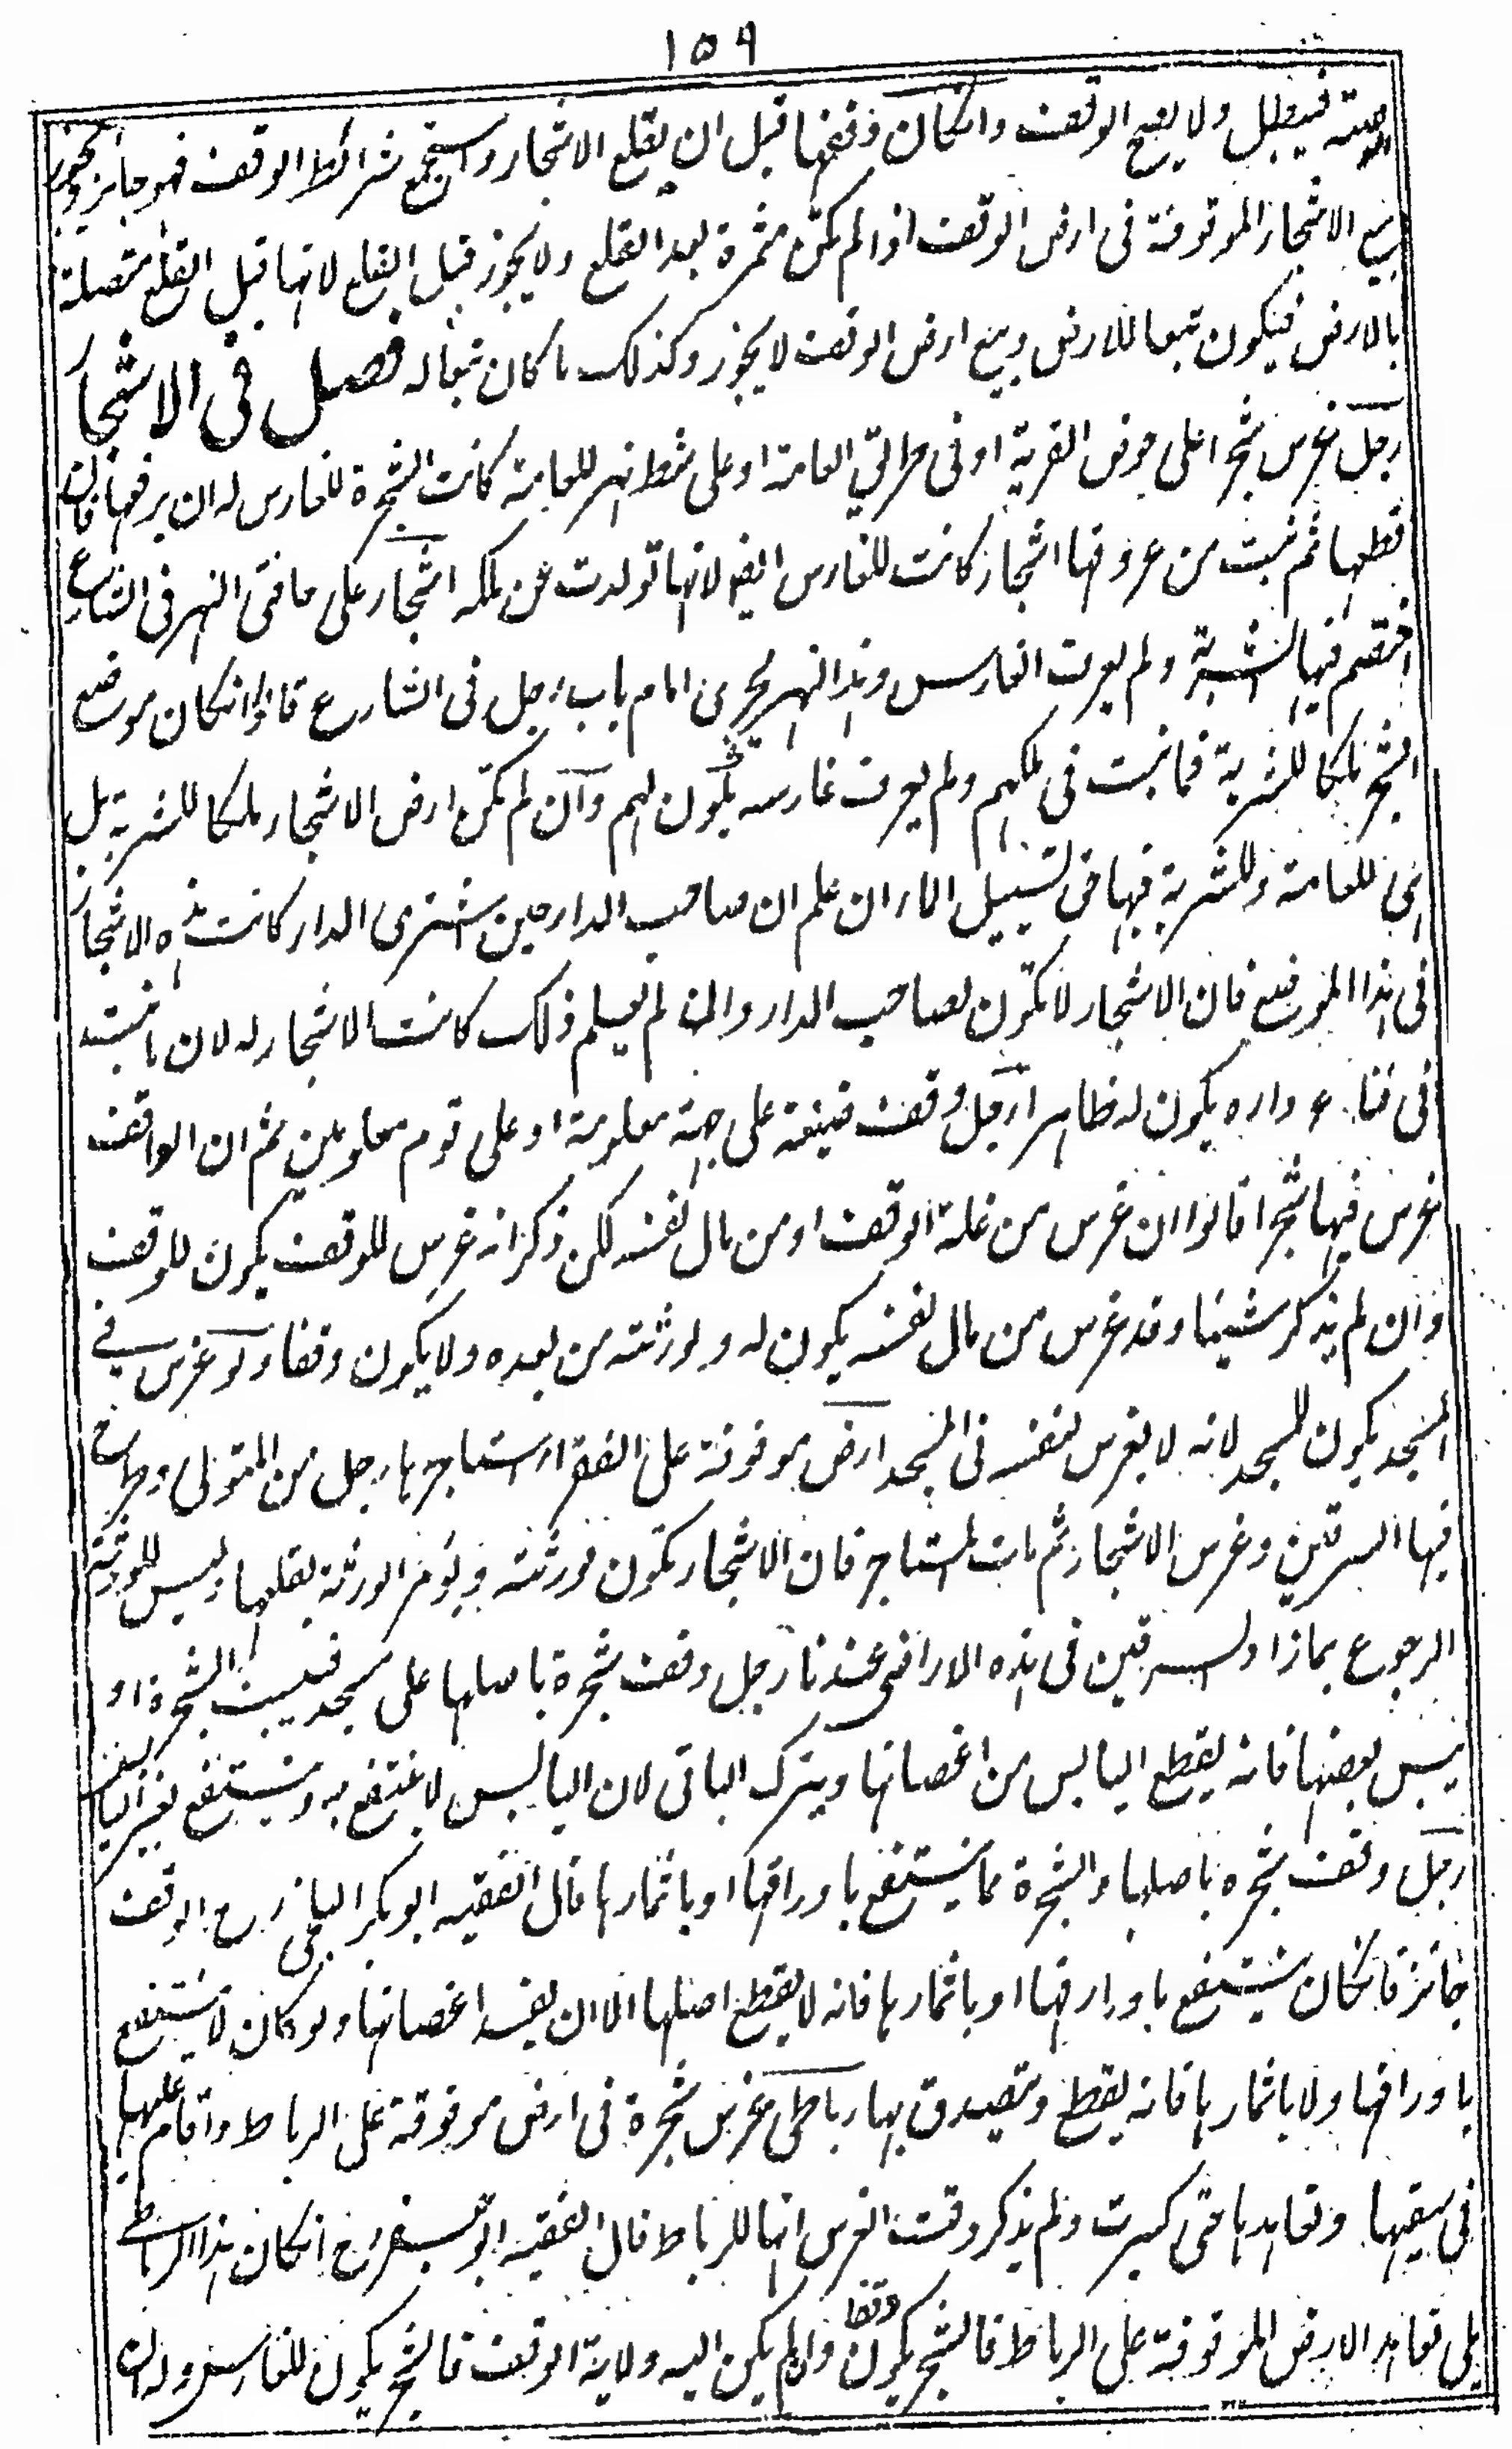 ١٥٩
الوصية فيبطل ولا يصح الوقف وانكان وقفها قبل ان يقلع الاشجار واستجمع شرائط الوقف فهو جائز ويجوز
بيع الاشجار الموقوفة فى ارض الوقف اذا لم تكن مثمرة بعد القلع ولا يجوز قبل القلع لانها قبل القلع متصلة
بالارض فيكون تبعا للارض وبيع ارض الوقف لا يجوز وكذلك ما كان تبعا له فصل فى الاشجار
رجل غرس شجرا على حوض القرية او فى طريق العامة او على شط نهر للعامة كانت الشجرة للغارس له ان يرفعها فان
قطعها ثم نبت من عروقها اشجار كانت للغارس ايضا لانها تولدت عن ملكه اشجار على حافتى النهر فى الشارع
اختصم فيها الشربة ولم يعرف الغارس وهذا النهر يجرى امام باب رجل فى الشارع قالوا انكان موضع
الشجر ملكا للشربة فما نبت فى ملكهم ولم يعرف غارسه يكون لهم وان لم تكن ارض الاشجار ملكا للشربة بل
هى للعامة وللشربة فيها حق تسييل الماء ان علم ان صاحب الدار حين اشترى الدار كانت هذه الاشجار
فى هذا الموضع فان الاشجار لا تكون لصاحب الدار وان لم يعلم ذلك كانت الاشجار له لان ما نبت
فى فناء داره يكون له ظاهرا رجل وقف ضيعة على جهة معلومة او على قوم معلومين ثم ان الواقف
غرس فيها شجرا قالوا ان غرس من غلة الوقف او من مال نفسه لكن ذكر انه غرس للوقف يكون للوقف
وان لم يذكر شيئا وقد غرس من مال نفسه يكون له ولورثته من بعده ولا يكون وقفا ولو غرس فى
المسجد يكون للمسجد لانه لا يغرس لنفسه فى المسجد ارض موقوفة على الفقراء استاجرها رجل من المتولى وطرح
فيها السرقين وغرس الاشجار ثم مات المستاجر فان الاشجار تكون لورثته ويؤمر الورثة بقلعها وليس للورثة
الرجوع بما زاد السرقين فى هذه الاراضى عندنا رجل وقف شجرة باصلها على مسجد فيبست الشجرة او
يبس بعضها فانه يقطع اليابس من اغصانها ويترك الباقى لان اليابس لا ينتفع به وينتفع بغير اليابس
رجل وقف شجرة باصلها والشجرة مما ينتفع باوراقها او باثمارها قال الفقيه ابو بكر البلخى رح الوقف
جائز فانكان ينتفع باوراقها او باثمارها فانه لا يقطع اصلها الا ان يفسد اغصانها ولو كان لا ينتفع
باوراقها ولا باثمارها فانه يقطع ويتصدق بها رباطى غرس شجرة فى ارض موقوفة على الرباط واقام عليها
فى سقيها وتعاهدها حتى كبرت ولم يذكر وقت الغرس انها للرباط قال الفقيه ابو جعفر رح انكان هذا الرباطى
يلى تعاهد الارض الموقوفة على الرباط فالشجر يكون وقفا وان لم يكن اليه ولاية الوقف فالشجر يكون للغارس وله ان